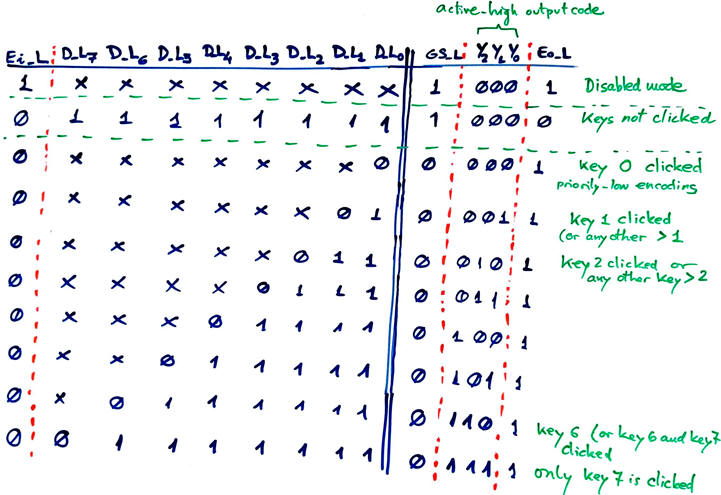 active-high output code
Ei_L D_L7 D_L6 D_L5 D_L4 D_L3 D_L2 D_L1 D_L0 GS_L Y2 Y1 Y0 Eo_L
1 x x x x x x x x 1 000 1 Disabled mode
0 1 1 1 1 1 1 1 1 1 000 0 Keys not clicked
0 x x x x x x x 0 0 000 1 Key 0 clicked
priority-low encoding
0 x x x x x x 0 1 0 001 1 Key 1 clicked
(or any other > 1
0 x x x x x 0 1 1 0 010 1 Key 2 clicked or
any other key > 2
0 x x x x 0 1 1 1 0 011 1
0 x x x 0 1 1 1 1 0 100 1
0 x x 0 1 1 1 1 1 0 101 1
0 x 0 1 1 1 1 1 1 0 110 1 Key 6 (or key 6 and key 7
clicked
0 0 1 1 1 1 1 1 1 0 111 1 only key 7 is clicked